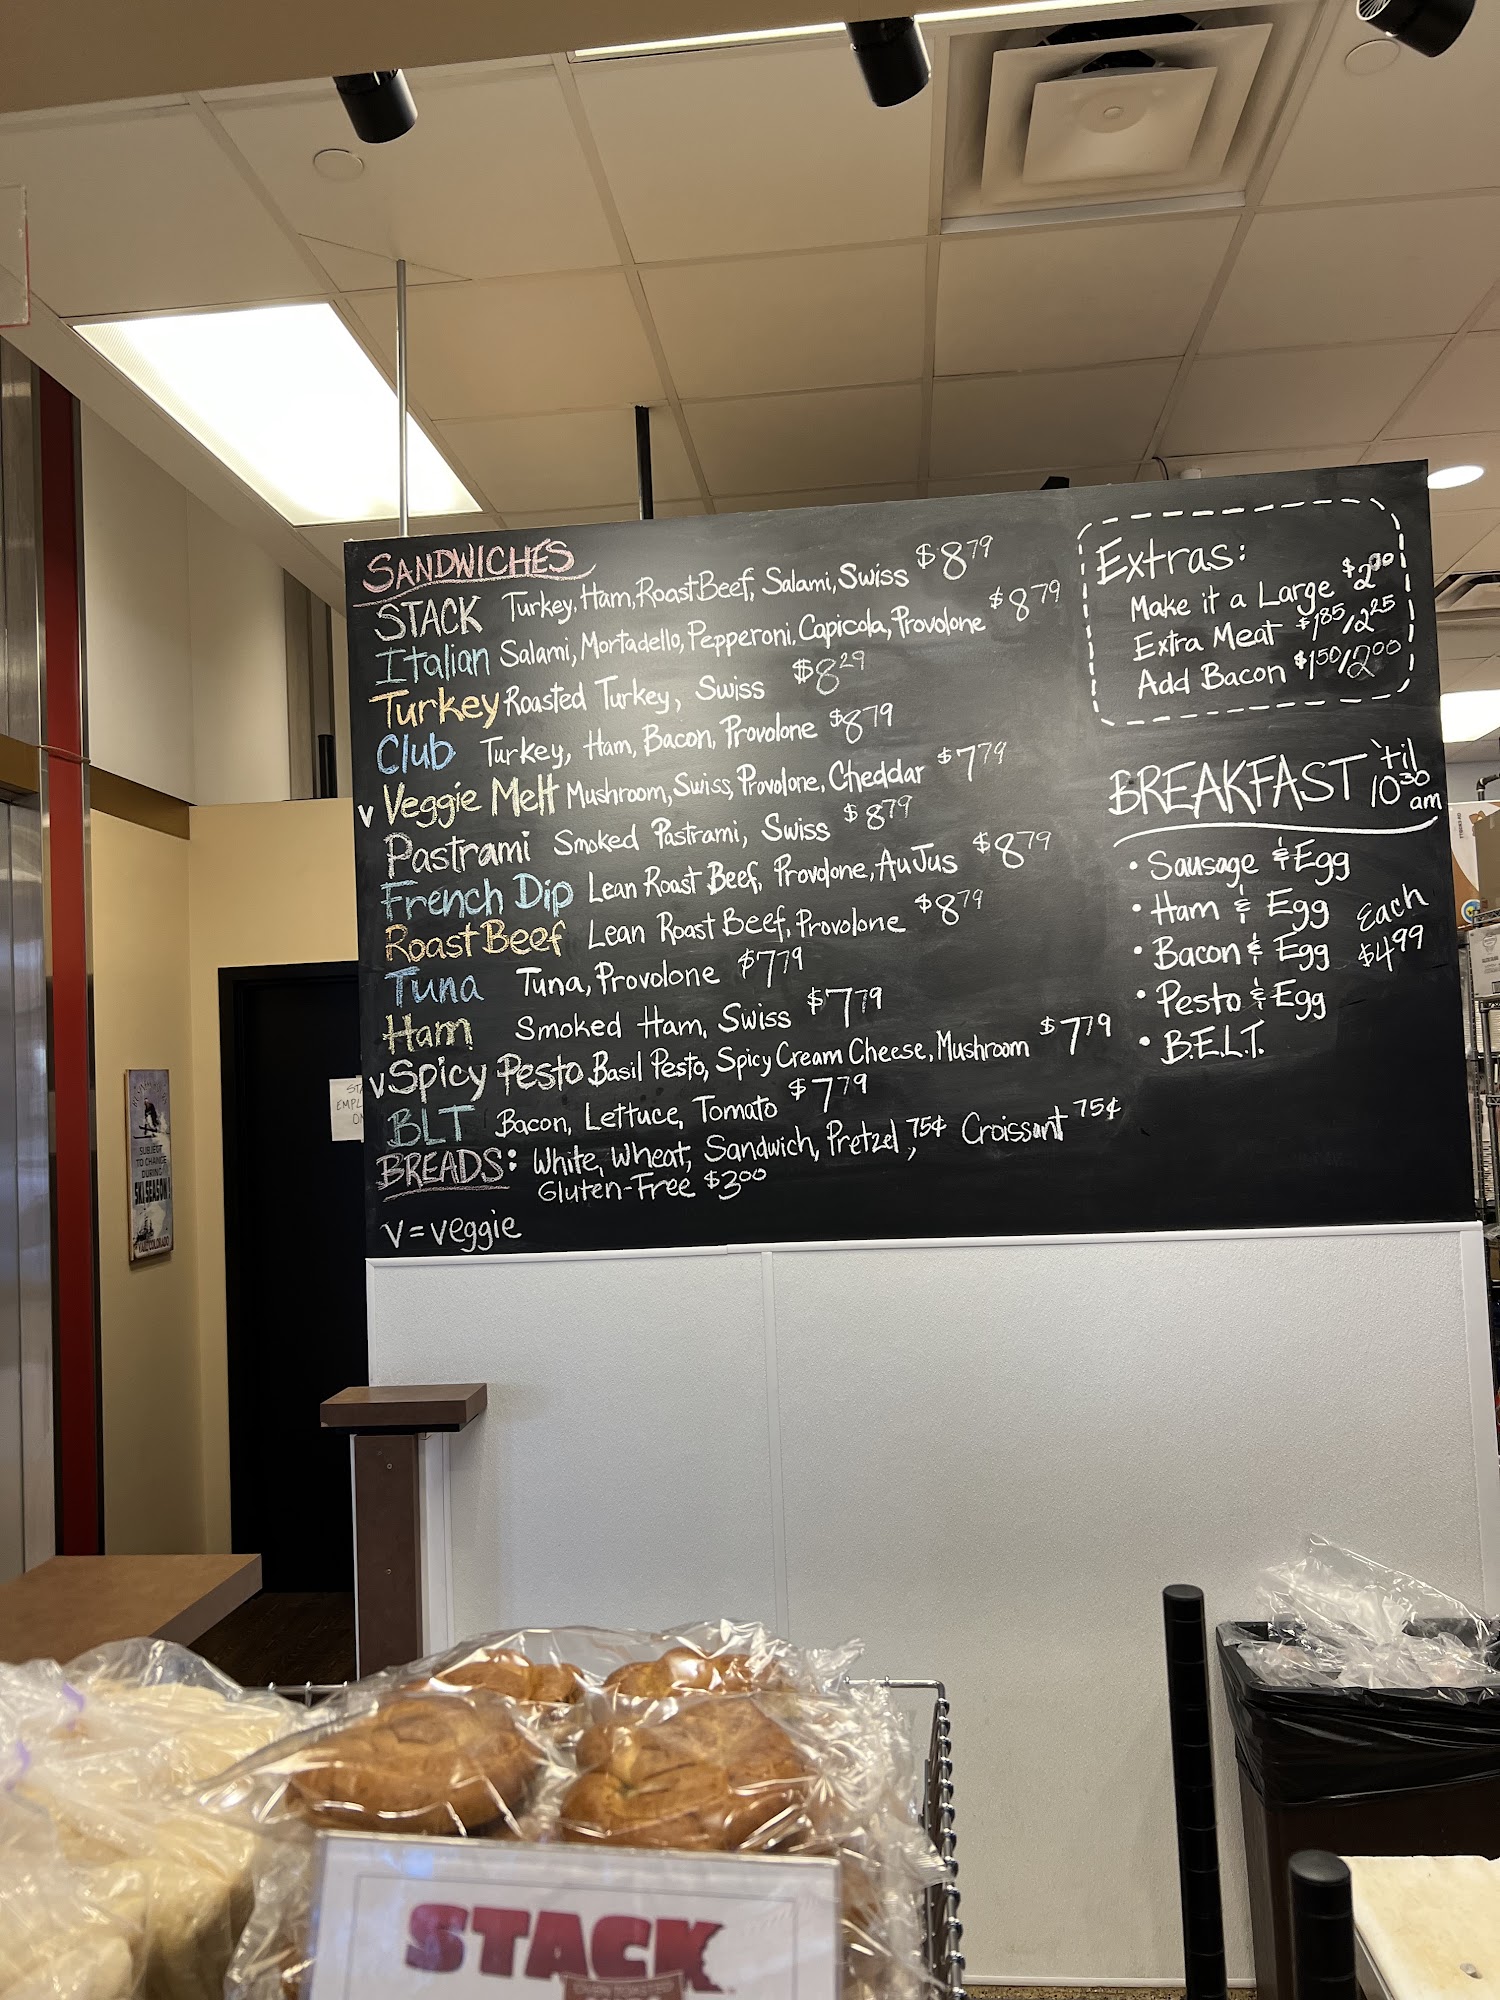 SANDWICHES
STACK Turkey, Ham, Roast Beef, Salami, Swiss $8.79
Italian Salami, Mortadello, Pepperoni, Capicola, Provolone $8.79
Turkey Roasted Turkey, Swiss $8.29
Club Turkey, Ham, Bacon, Provolone $8.79
V Veggie Melt Mushroom, Swiss, Provolone, Cheddar $7.79
Pastrami Smoked Pastrami, Swiss $8.79
French Dip Lean Roast Beef, Provolone, Au Jus $8.79
Roast Beef Lean Roast Beef, Provolone $8.79
Tuna Tuna, Provolone $7.79
Ham Smoked Ham, Swiss $7.79
V Spicy Pesto Basil Pesto, Spicy Cream Cheese, Mushroom $7.79
BLT Bacon, Lettuce, Tomato $7.79
BREADS: White, Wheat, Sandwich, Pretzel 75¢, Croissant 75¢
Gluten-Free $3.00
V = veggie
Extras:
Make it a Large $2.00
Extra Meat $1.85/2.25
Add Bacon $1.50/2.00
BREAKFAST 'til 10:30 am
• Sausage & Egg
• Ham & Egg
• Bacon & Egg
• Pesto & Egg
• B.E.L.T.
Each
$4.99
SUBJECT
TO CHANGE
DURING
SKI SEASON!
STACK